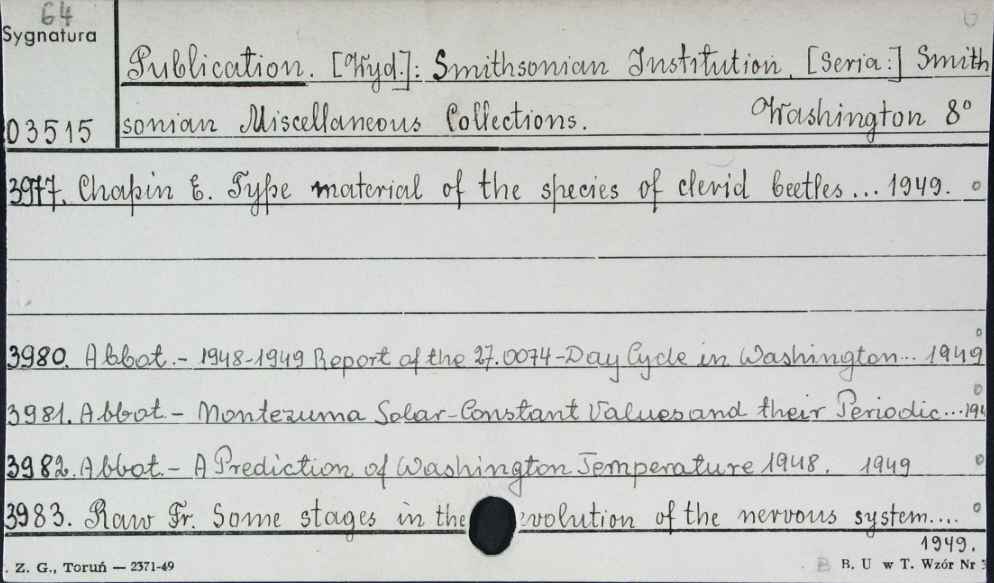 64
Sygnatura
Publication. [Wyd.]: Smithsonian Institution. [Seria:] Smith
03515 sonian Miscellaneous Collections. Washington 8°
3977. Chapin E. Type material of the species of clerid beetles... 1949. o
3980. Abbot.- 1948-1949 Report of the 27.0074-Day Cycle in Washington... 1949 o
3981. Abbot - Montezuma Solar-Constant Values and their Periodic...194 o
3982. Abbot.- A Prediction of Washington Temperature 1948. 1949 o
3983. Raw Fr. Some stages in the evolution of the nervous system.... o
1949.
Z. G., Toruń — 2371-49 B. U w T. Wzór Nr 3